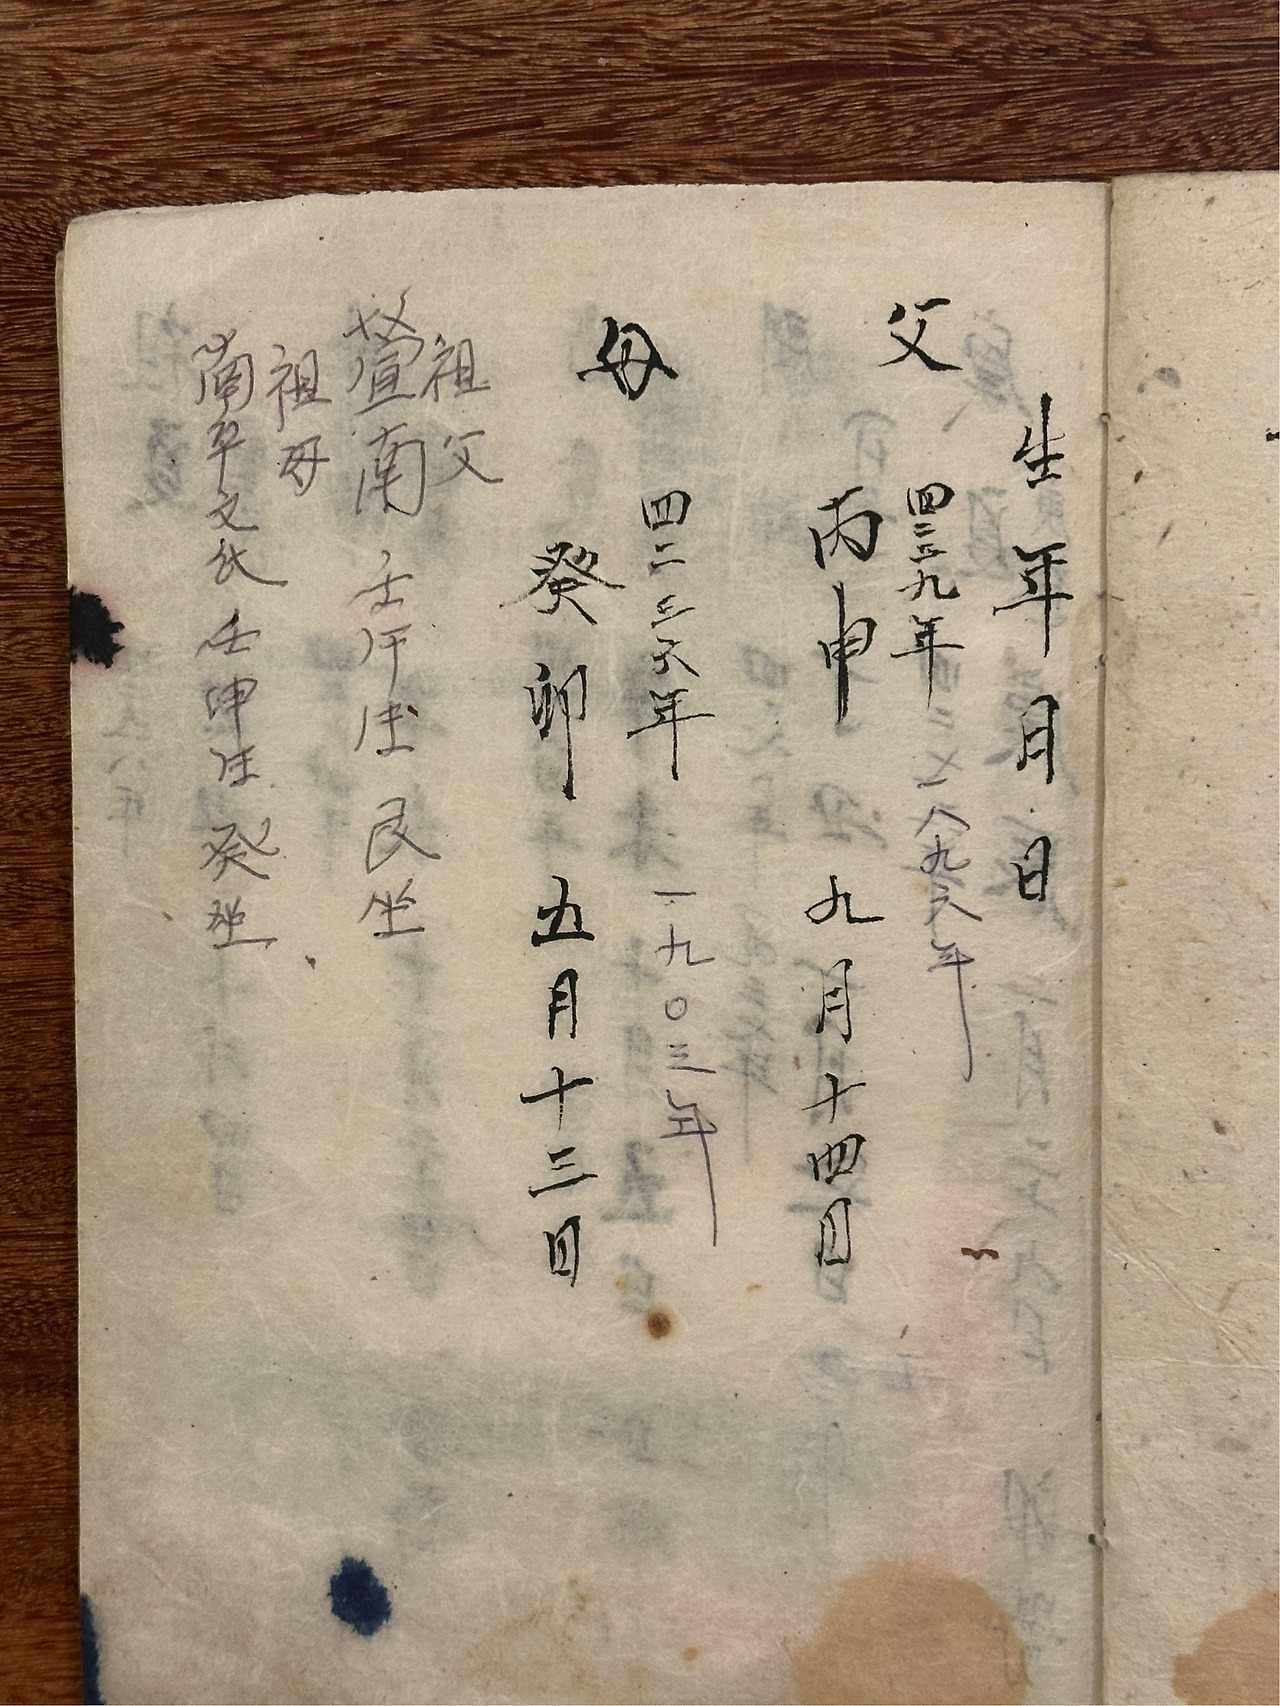 生年月日
父
四二二九年 一八九六年
丙申 九月十四日
母
四二三六年 一九〇三年
癸卯 五月十三日
祖父
萱南 壬午生 艮坐
祖母
南平文氏 壬申生 癸坐